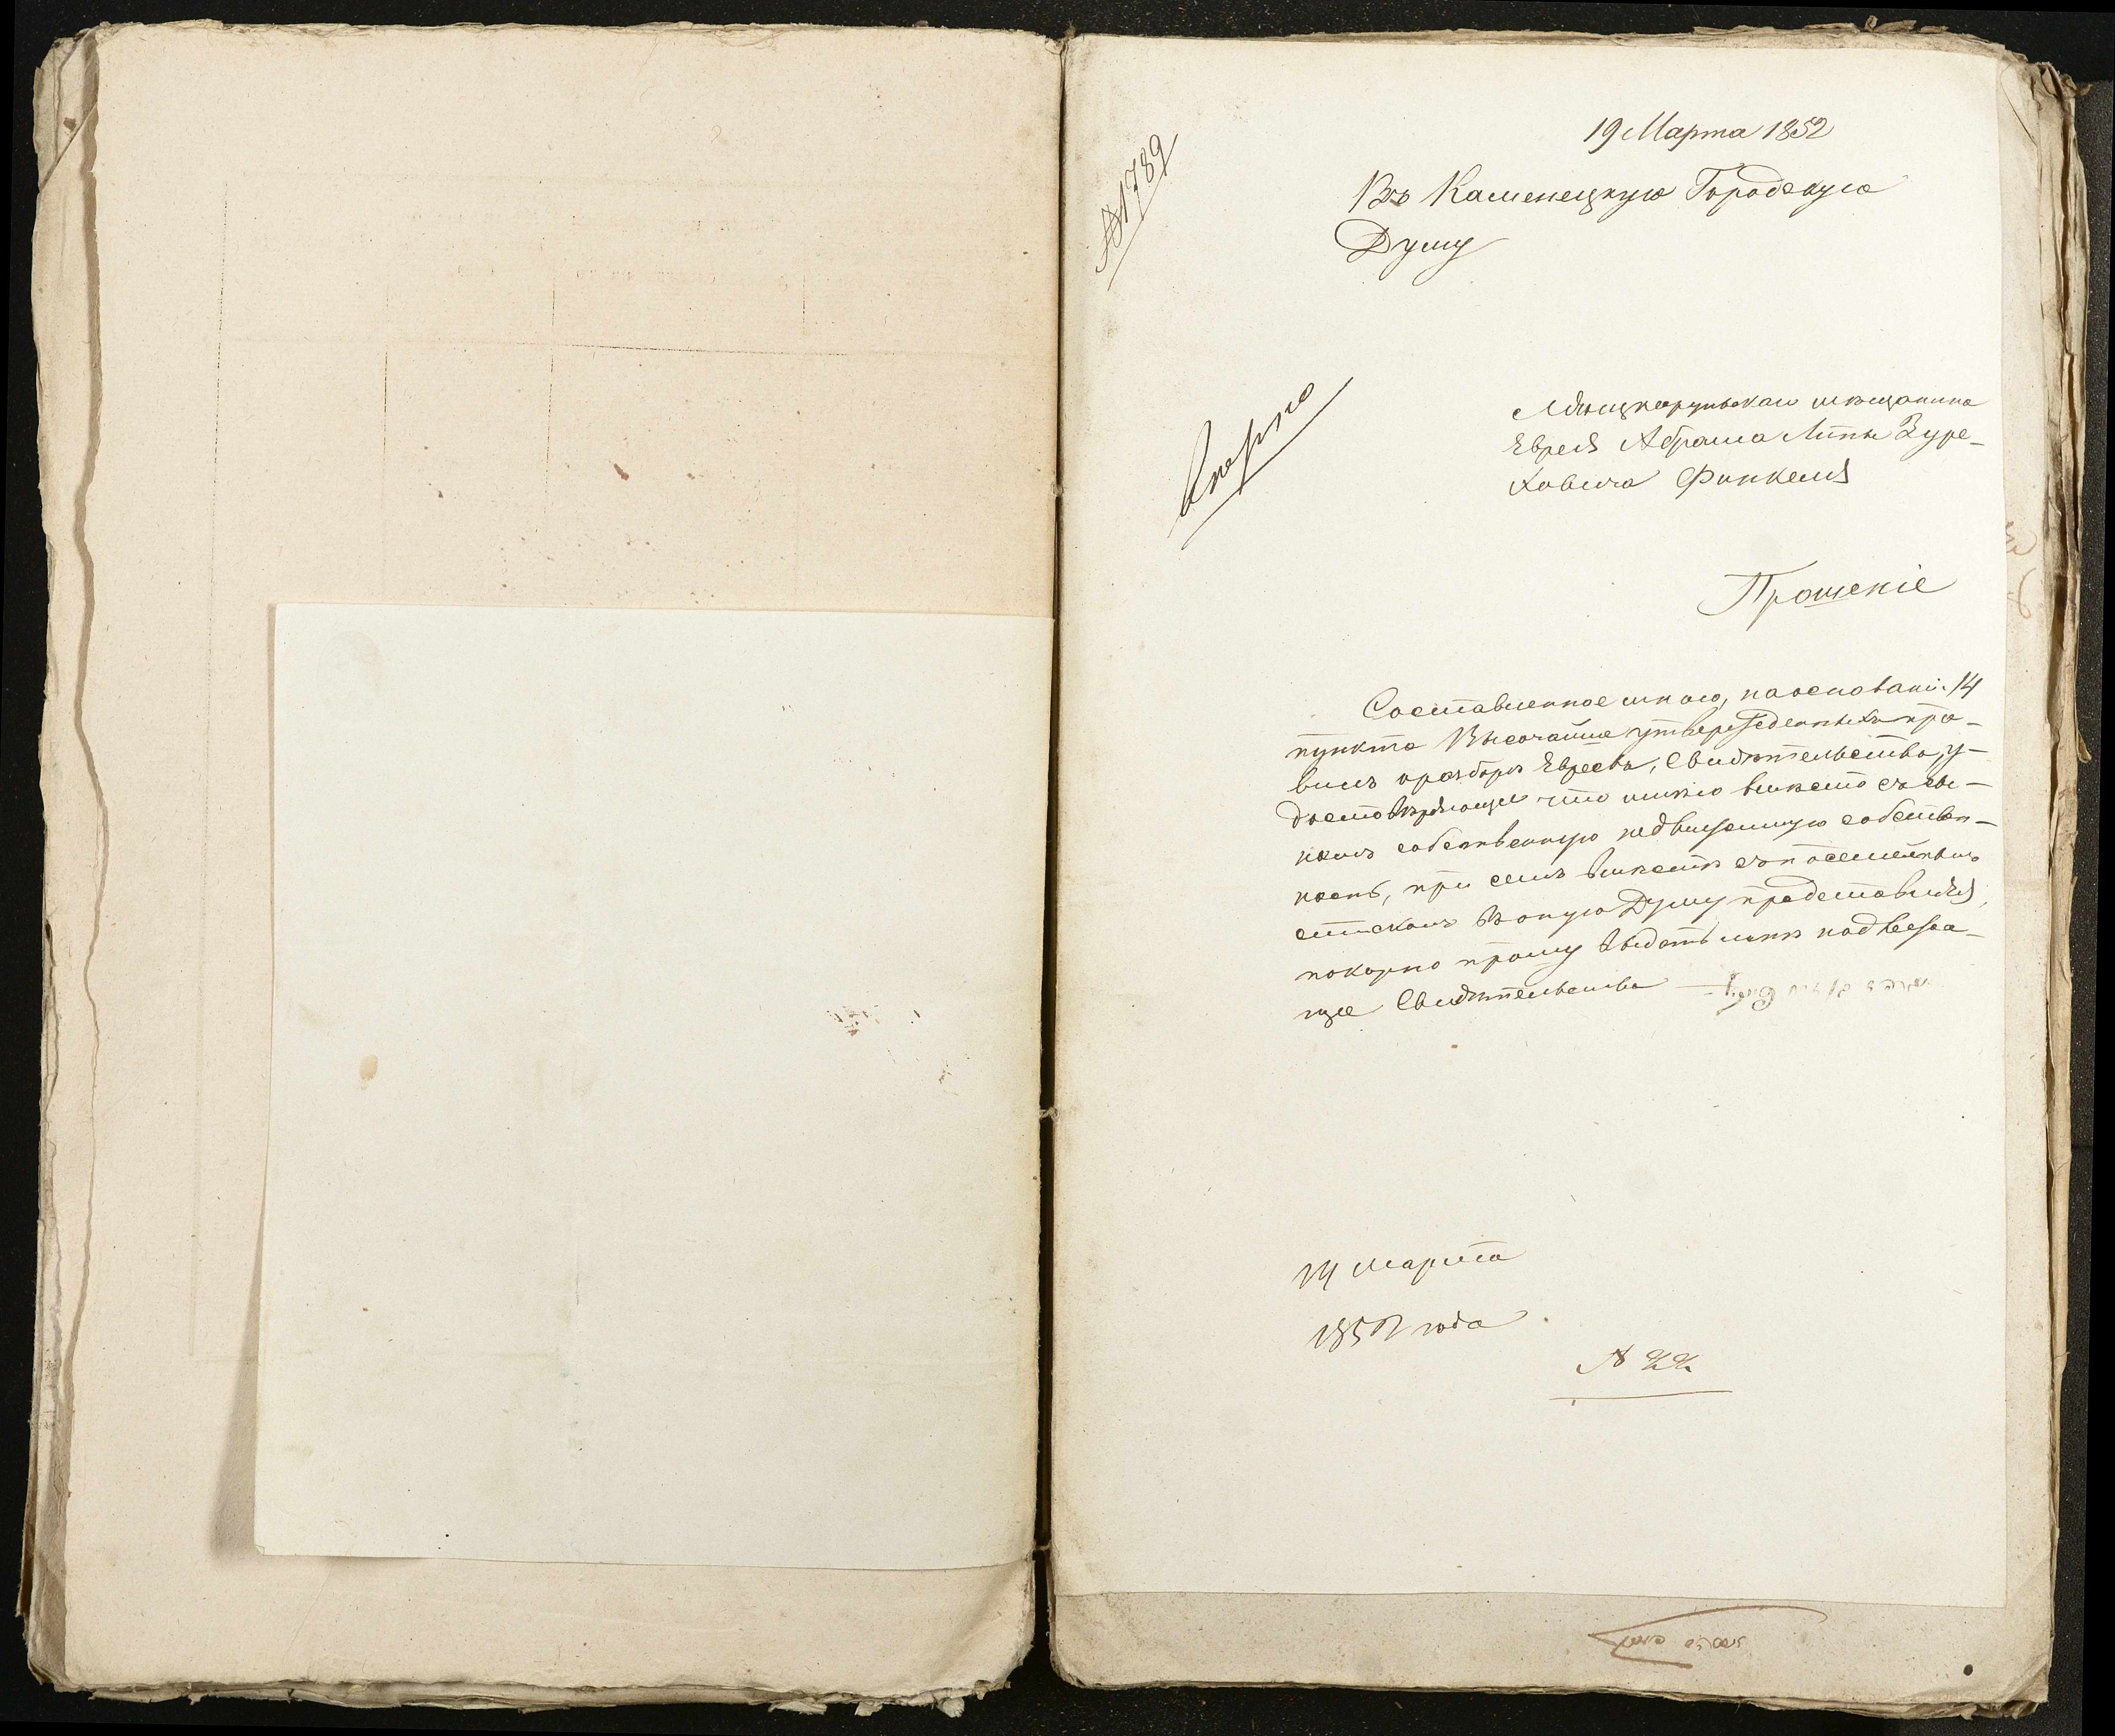 19 Марта 1852
№ 1789
Въ Каменецкую Городскую
Думу
мѣщанина
Еврея Абрама Липы Зуре-
ховича Финкеля
Прошеніе
Составленное мною, на основаніи 14
пункта Высочайше утвержденныхъ пра-
вилъ о разборѣ Евреевъ, Свидѣтельство, у-
достовѣряющее что имѣю вмѣсто съ сы-
номъ собственную недвижимую собствен-
ность, при семъ вмѣстѣ съ посемейнымъ
спискомъ въ оную Думу представляя,
покорно прошу выдать мнѣ надлежа-
щее Свидѣтельство
14 марта
1852 года